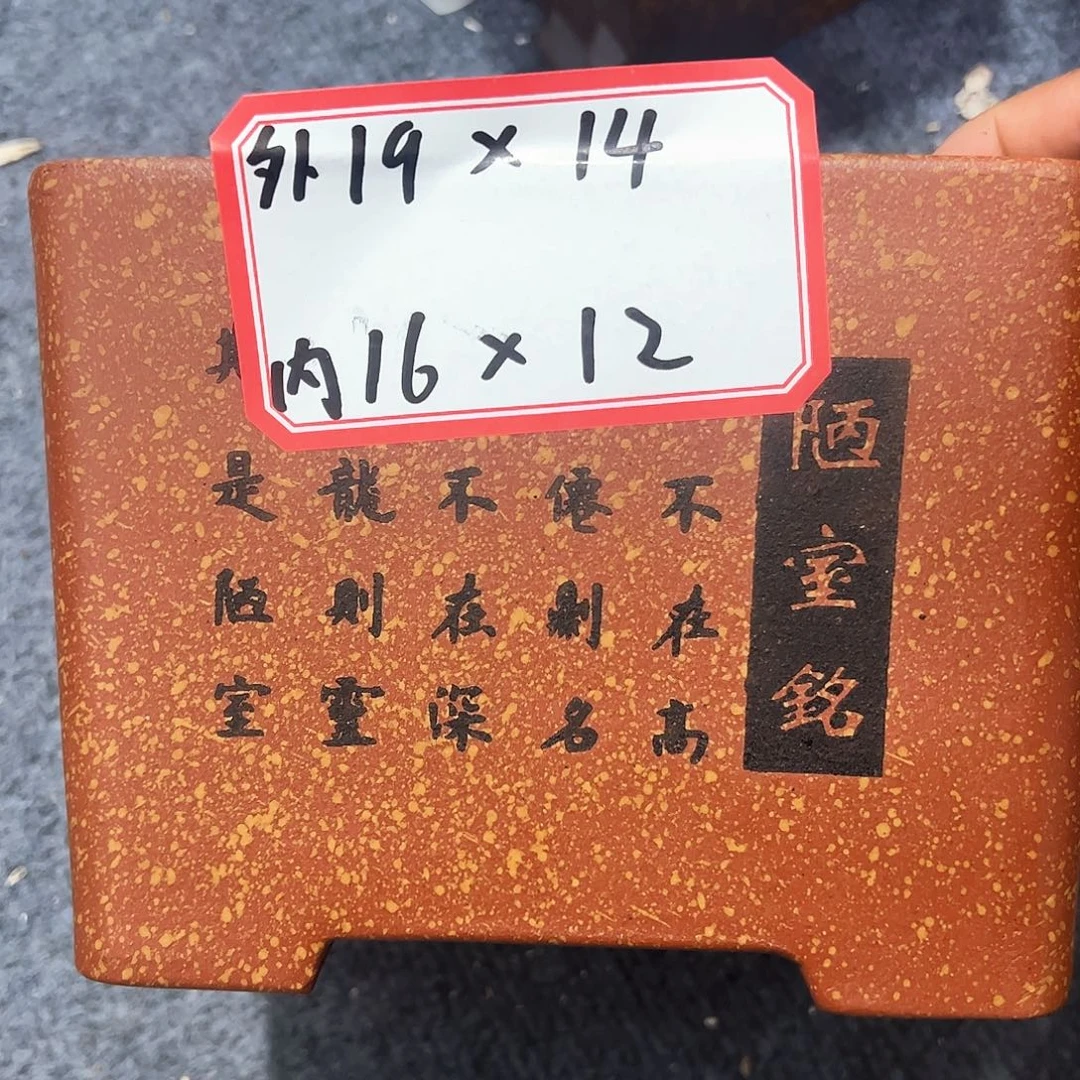 外19×14
内16×12
陋室銘
不在高
僊則名
不在深
龍則靈
是陋室